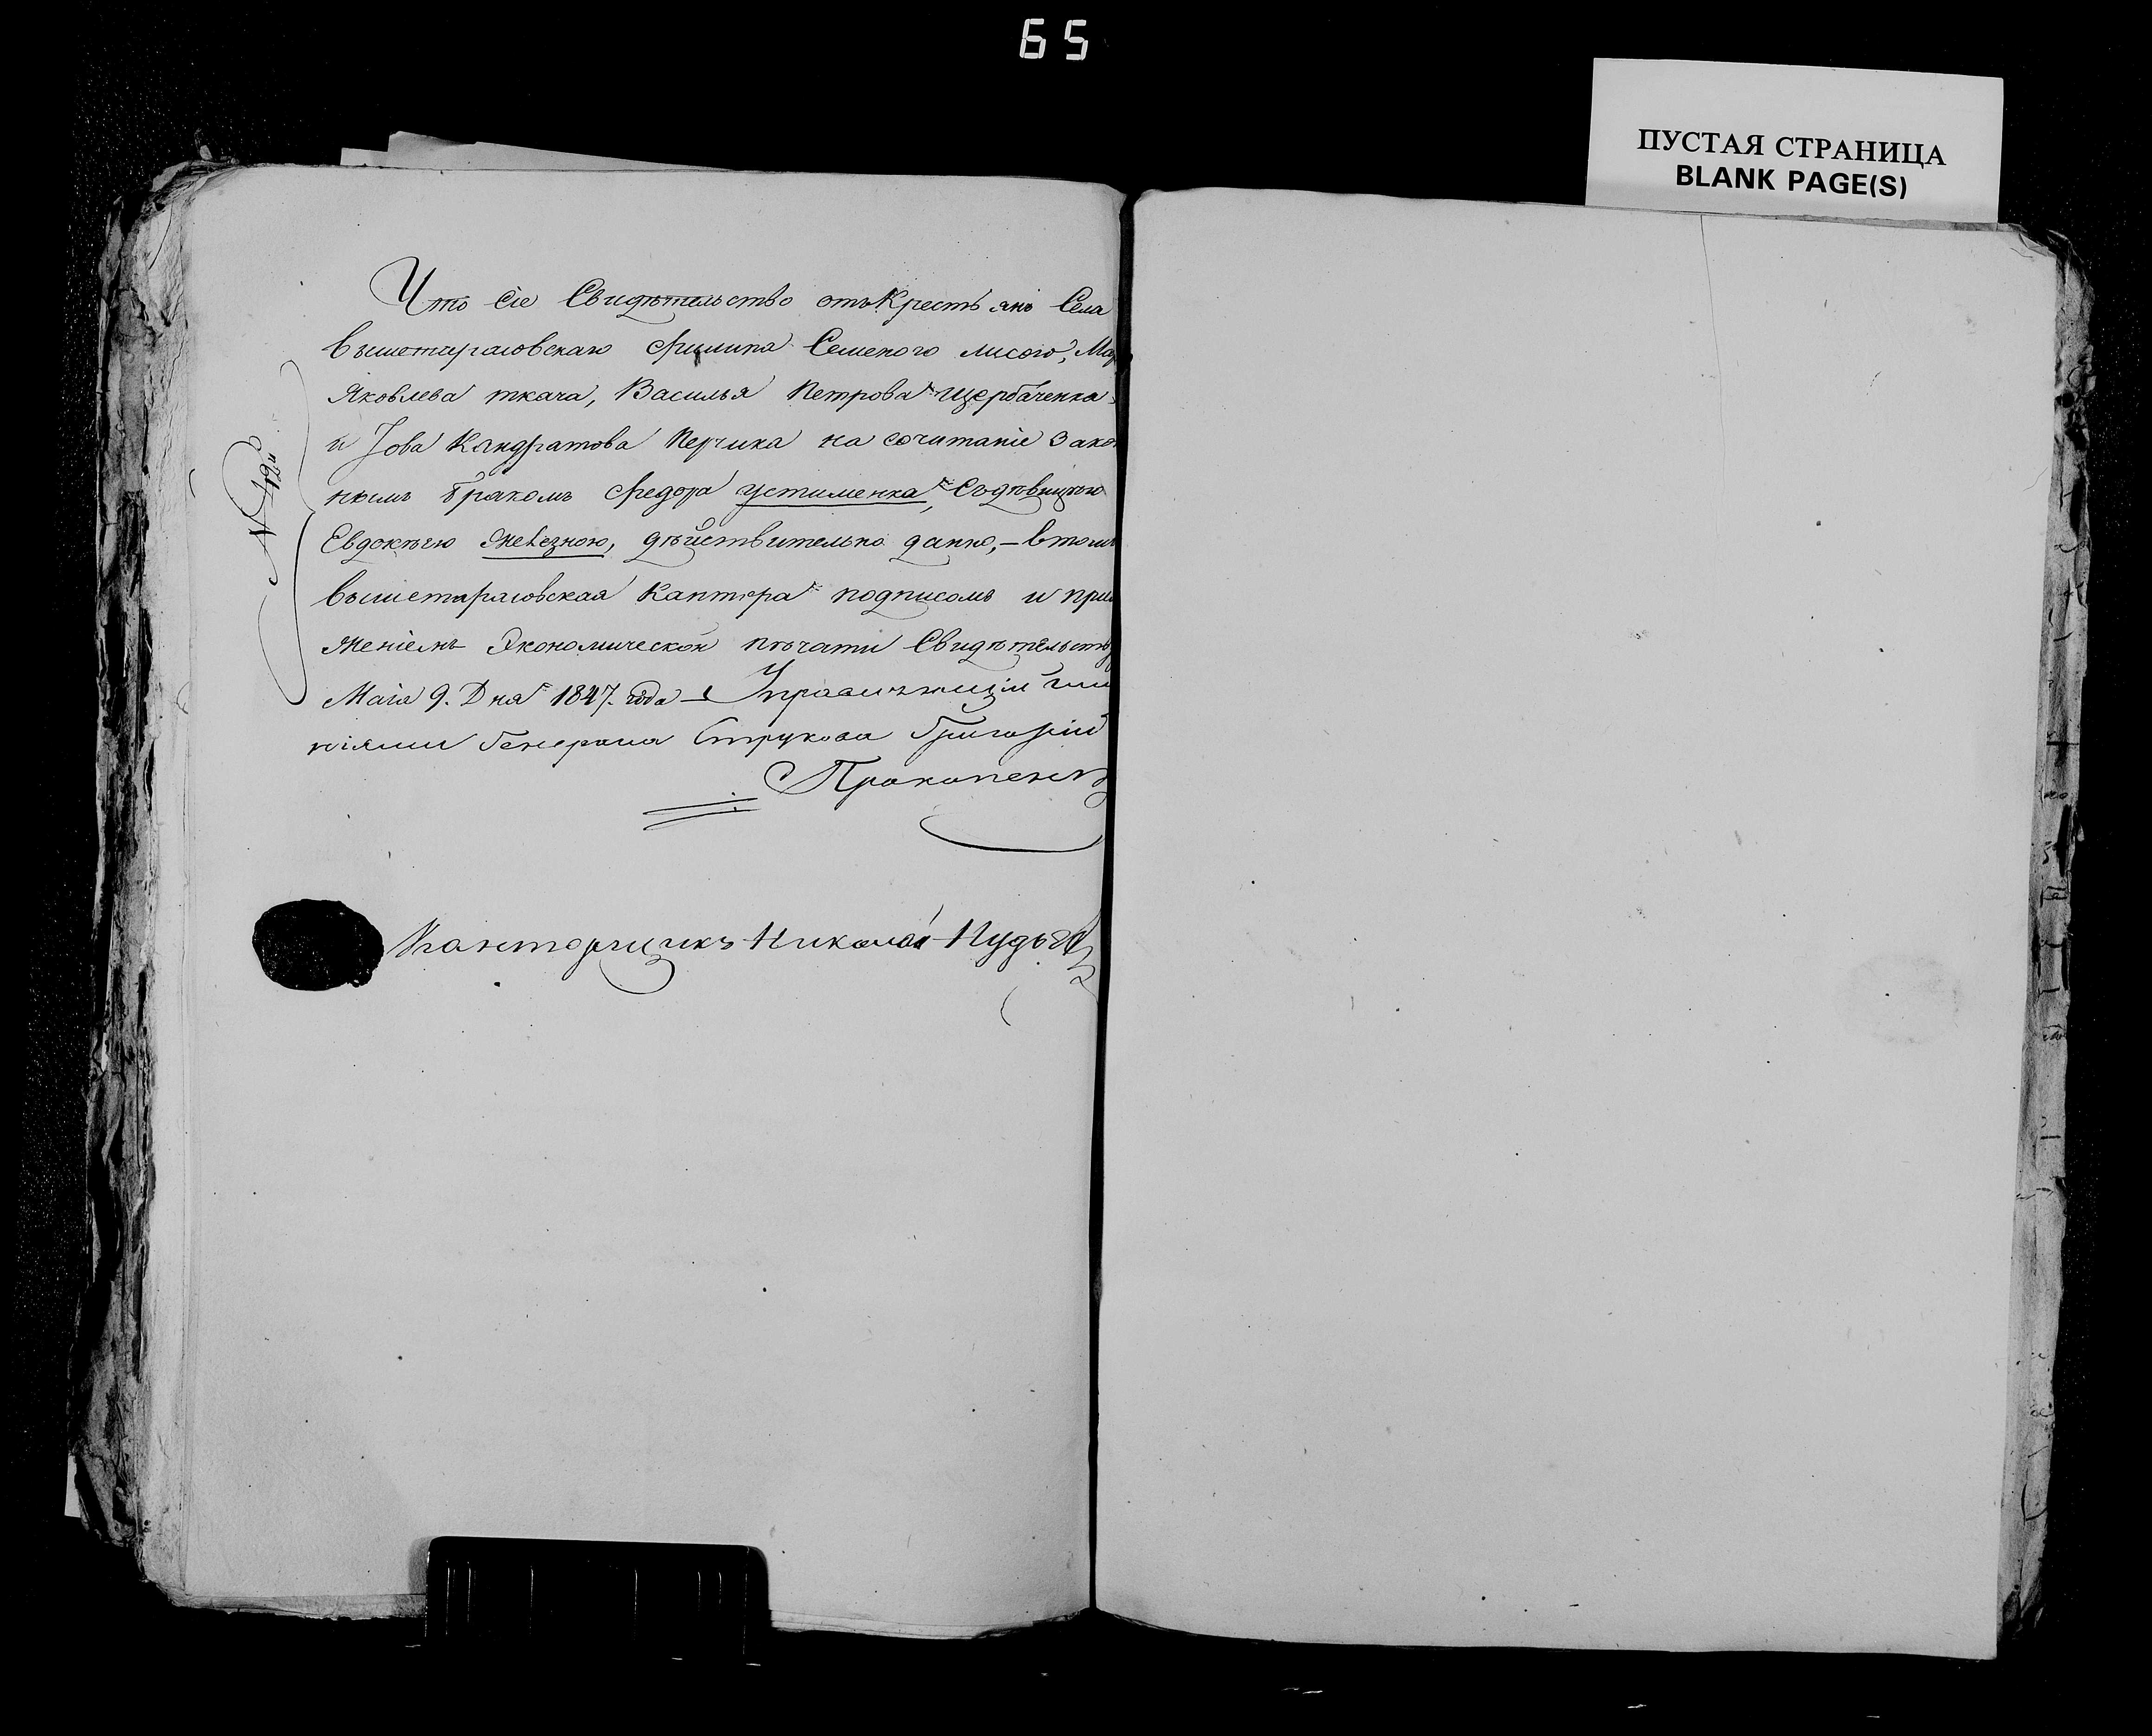 65
ПУСТАЯ СТРАНИЦА
BLANK PAGE(S)
Что сіе Свидѣтельство отъ Крестьянъ Села
вышетарасовскаго Филипа Семеного лисого,
Яковлева ткача, Василья Петрова Щербаченка
и Іова Кандратова Перчика на сочитаніе Зако
нымъ бракомъ Федора Устименка, Съдѣвицѣю
Евдокѣею Железною, дѣйствительно данно, — втомъ
вышетарасовская Кантора подписомъ и при
женіемъ Экономической пѣчати Свидѣтельств
Маія 9. Дня 1847. года
ніями Генерала Струкова Григорій
Прокопенко
Канторщикъ Николай